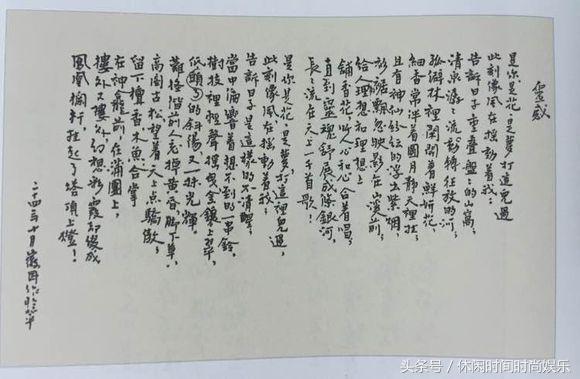 靈感
是你，是花，是夢，打這兒過，
此刻像風在搖動着我；
告訴日子重疊盤盤的山窩；
清泉潺潺流動轉狂放的河；
孤僻林裡閒開着鮮妍花，
細香常伴着圓月靜天裡挂；
且有神仙紛紜的浮出紫煙，
衫裾飄忽映影在山溪前；
給人理想和理想上
鋪香花，叫人心和心合着唱；
直到靈魂舒展成條銀河，
長長流在天上一千首歌！
是你，是花，是夢，打這裡兒過，
此刻像風在搖動着我；
告訴日子是這樣的不清醒；
當中偏響着想不到的一串鈴，
樹枝裡輕聲搖曳；金鑲上翠，
低頭的斜陽，又一抹光輝。
難怪階前人忘掉黃昏，脚下草，
高閣古松，望着天上點驕傲；
留下檀香，木魚，合掌
在神龕前，在蒲團上，
樓外又樓外，幻想彩霞却綴成
鳳凰欄杆，挂起了塔頂上燈！
二十四年十月 徽因作於北平
头条号／休闲时间时尚娱乐